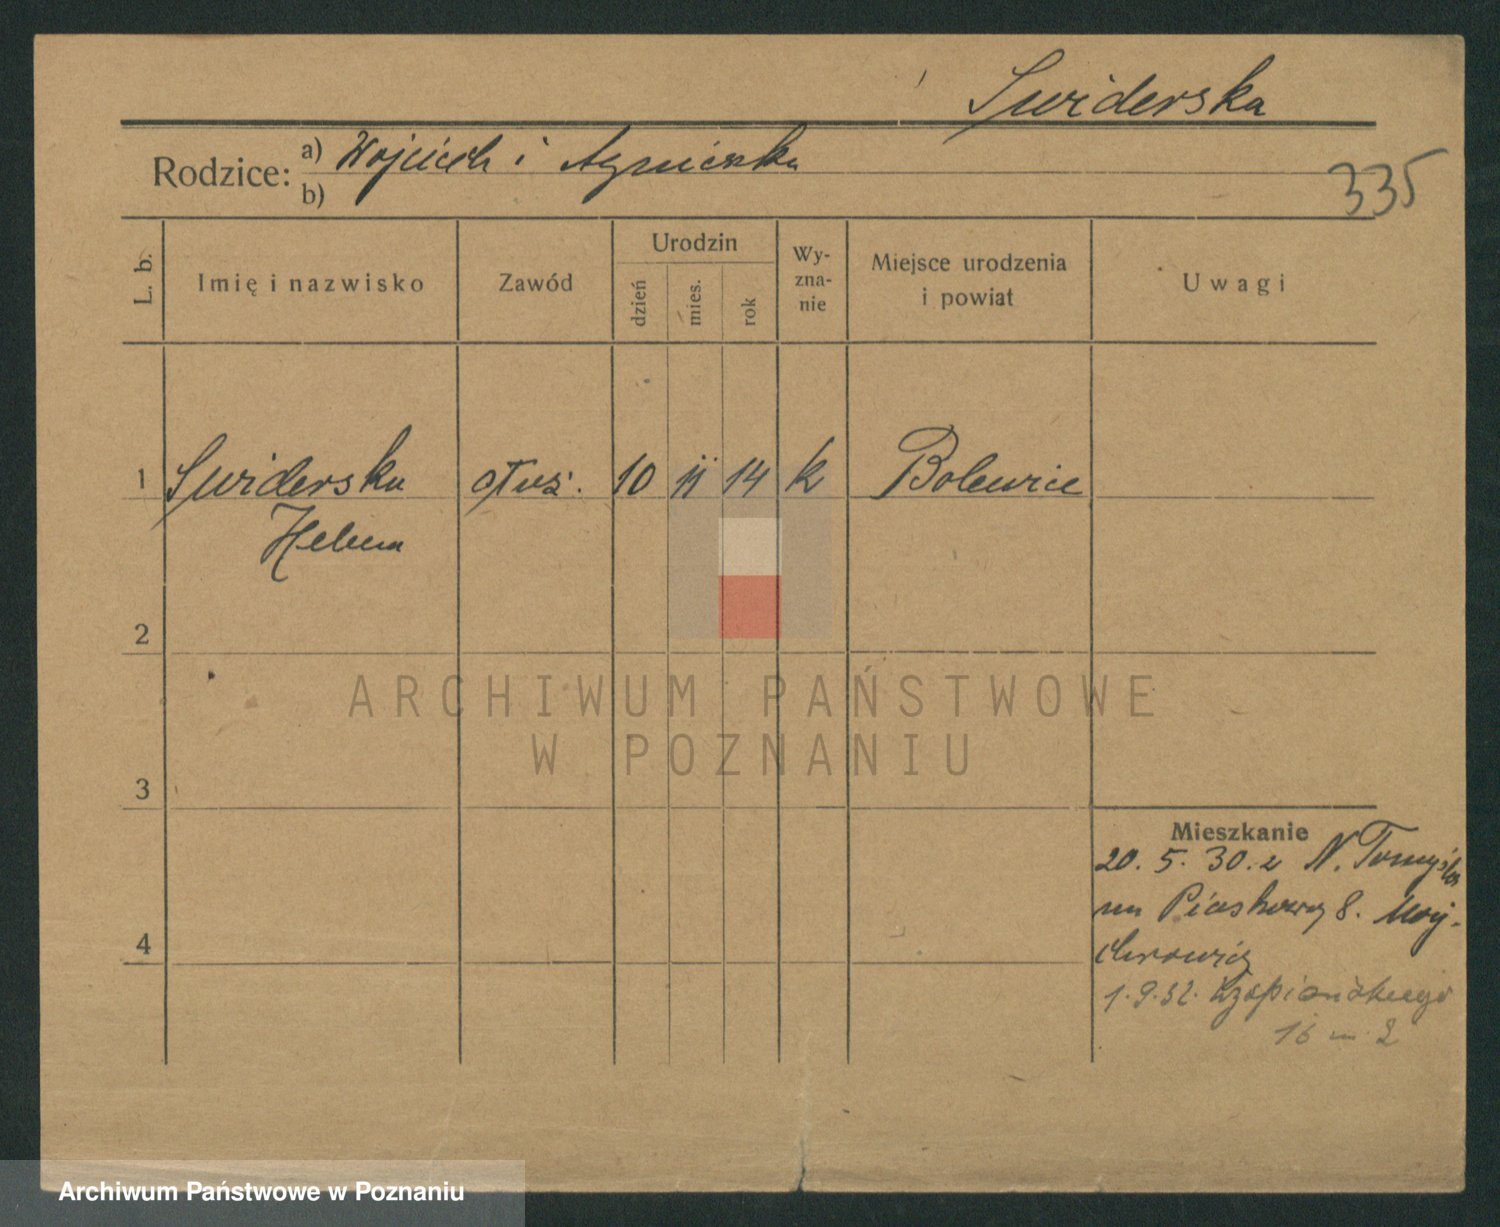 Swiderska
Rodzice: a) Wojciech i Agnieszka
b)
335
L. b.
Imię i nazwisko
Zawód
Urodzin
dzień
mies.
rok
Wy-
zna-
nie
Miejsce urodzenia
i powiat
Uwagi
1 Swiderska służ. 10 11 14 k Bolewice
Helena
2
ARCHIWUM PAŃSTWOWE
W POZNANIU
3
Mieszkanie
20. 5. 30. z N. Tomyśla
na Piaskowa 8.
4
1.9.32. Wyspiańskiego
16 m 2
Archiwum Państwowe w Poznaniu